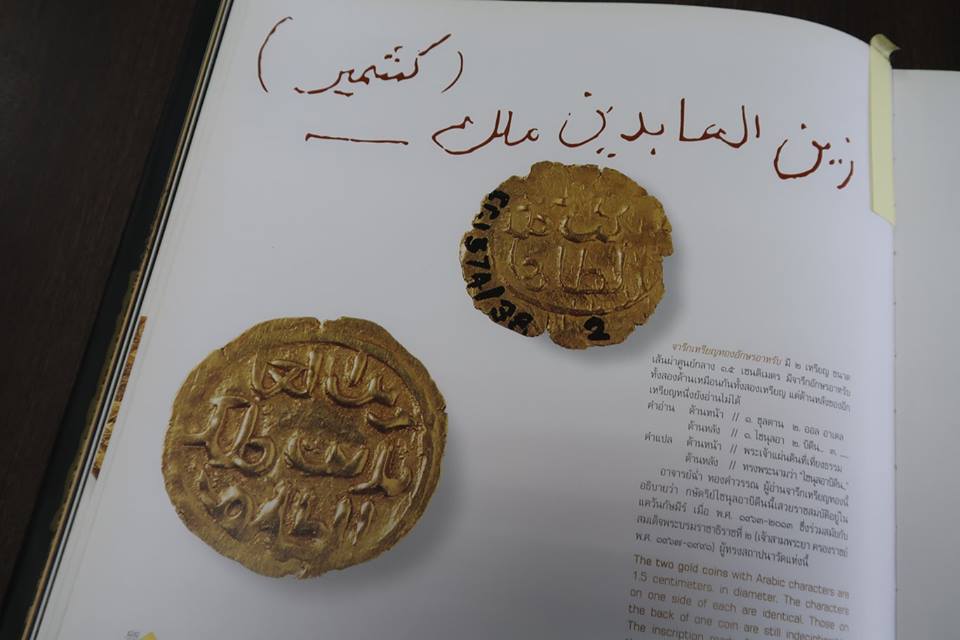 (كشمير)
زين العابدين ملك
2
จารึกเหรียญทองอักษรอาหรับ มี ๒ เหรียญ ขนาด
เส้นผ่าศูนย์กลาง ๑.๕ เซนติเมตร มีจารึกอักษรอาหรับ
ทั้งสองด้านเหมือนกันทั้งสองเหรียญ แต่ด้านหลังของอีก
เหรียญหนึ่งยังอ่านไม่ได้
คำอ่าน ด้านหน้า // ๑. ซุลตาน ๒. ออล อาเดล
ด้านหลัง // ๑. ไซนูลอา ๒. บิดีน.. ๓. —
คำแปล ด้านหน้า // พระเจ้าแผ่นดินที่เที่ยงธรรม
ด้านหลัง // ทรงพระนามว่า "ไซนูลอาบิดีน,"
อาจารย์ฉ่ำ ทองคำวรรณ ผู้อ่านจารึกเหรียญทองนี้
อธิบายว่า กษัตริย์ไซนูลอาบิดีนนี้เสวยราชสมบัติอยู่ใน
แคว้นกัษมีร์ เมื่อ พ.ศ. ๑๙๖๓-๒๐๑๓ ซึ่งร่วมสมัยกับ
สมเด็จพระบรมราชาธิราชที่ ๒ (เจ้าสามพระยา ครองราชย์
พ.ศ. ๑๙๖๗-๑๙๙๑) ผู้ทรงสถาปนาวัดแห่งนี้
The two gold coins with Arabic characters are
1.5 centimeters. in diameter. The characters
on one side of each are identical. Those on
the back of one coin are still
The inscription